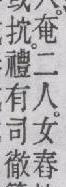 人。奄二人。女舂
或抗。禮有司徹